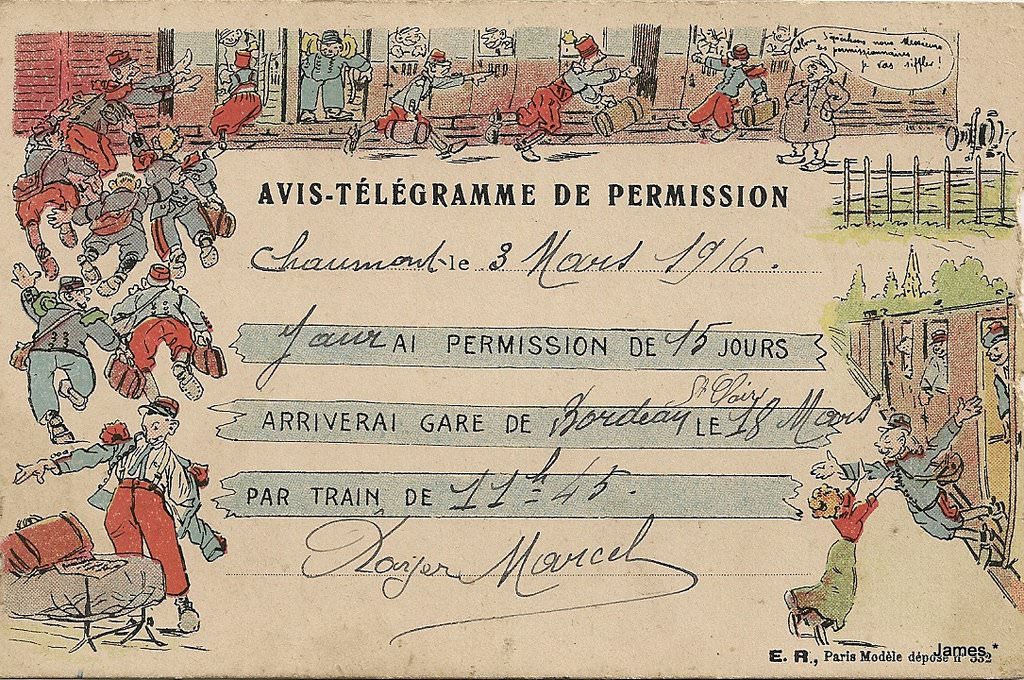 Allons dépêchons nous Messieurs
les permissionnaires
je vas siffler !
AVIS-TÉLÉGRAMME DE PERMISSION
Chaumont le 3 Mars 1916.
J'aur AI PERMISSION DE 15 JOURS
St Clair
ARRIVERAI GARE DE Bordeau LE 18 Mars
PAR TRAIN DE 11h 45.
Marcel
E. R., Paris Modèle déposé n° 332
James *